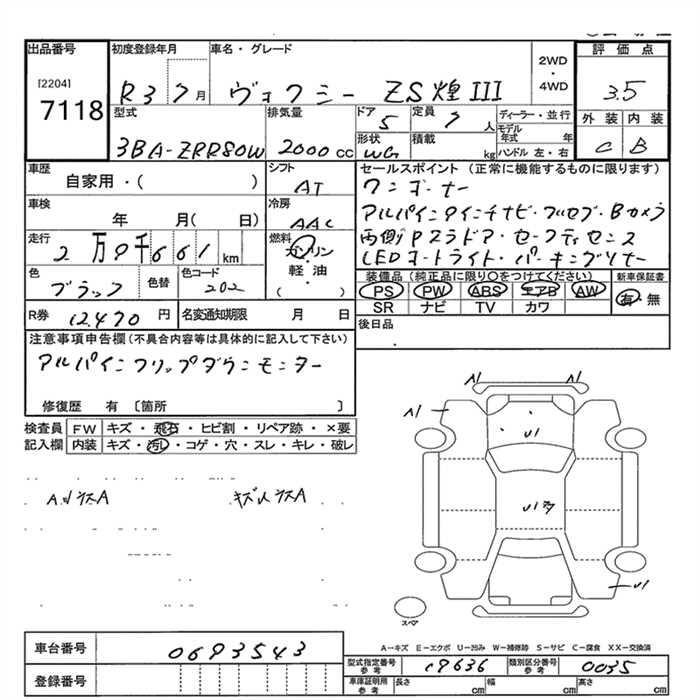 出品番号 初度登録年月 車名・グレード 2WD・4WD 評価点
[2204]
7118 R3 7月 ヴォクシー ZS煌III 3.5
型式 排気量 ドア 5 定員 7人 ディーラー・並行 外装 内装
3BA-ZRR80W 2000cc 形状 WG 積載 kg モデル年式 年 ハンドル 左・右 C B
車歴 シフト セールスポイント (正常に機能するものに限ります)
自家用・( ) AT ワンオーナー
車検 冷房 アルパイン9インチナビ・フルセブ・Bカメラ
年 月( 日) AAC 両側Pスラドア・セーフティセンス
走行 燃料 LEDオートライト・パーキングソナー
2万9千661km ガソリン・軽油 ( )
色 色替 色コード 装備品 (純正品に限り○をつけてください) 新車保証書
ブラック 202 PS PW ABS エアB AW 有・無
SR ナビ TV カワ
R券 12,470円 名変通知期限 月 日 後日品
注意事項申告欄 (不具合内容等は具体的に記入して下さい)
アルパインフリップダウンモニター
修復歴 有 〔箇所 〕
検査員記入欄 FW キズ・飛石・ヒビ割・リペア跡・×要
内装 キズ・汚レ・コゲ・穴・スレ・キレ・破レ
A1 A1
A1
U1
U1多
U1
スペア
A-キズ E-エクボ U-凹み W-補修跡 S-サビ C-腐食 XX-交換済
車台番号 0693543
型式指定番号 参考 19636 類別区分番号 参考 0035
登録番号 車庫証明用 参考 長さ cm 幅 cm 高さ cm